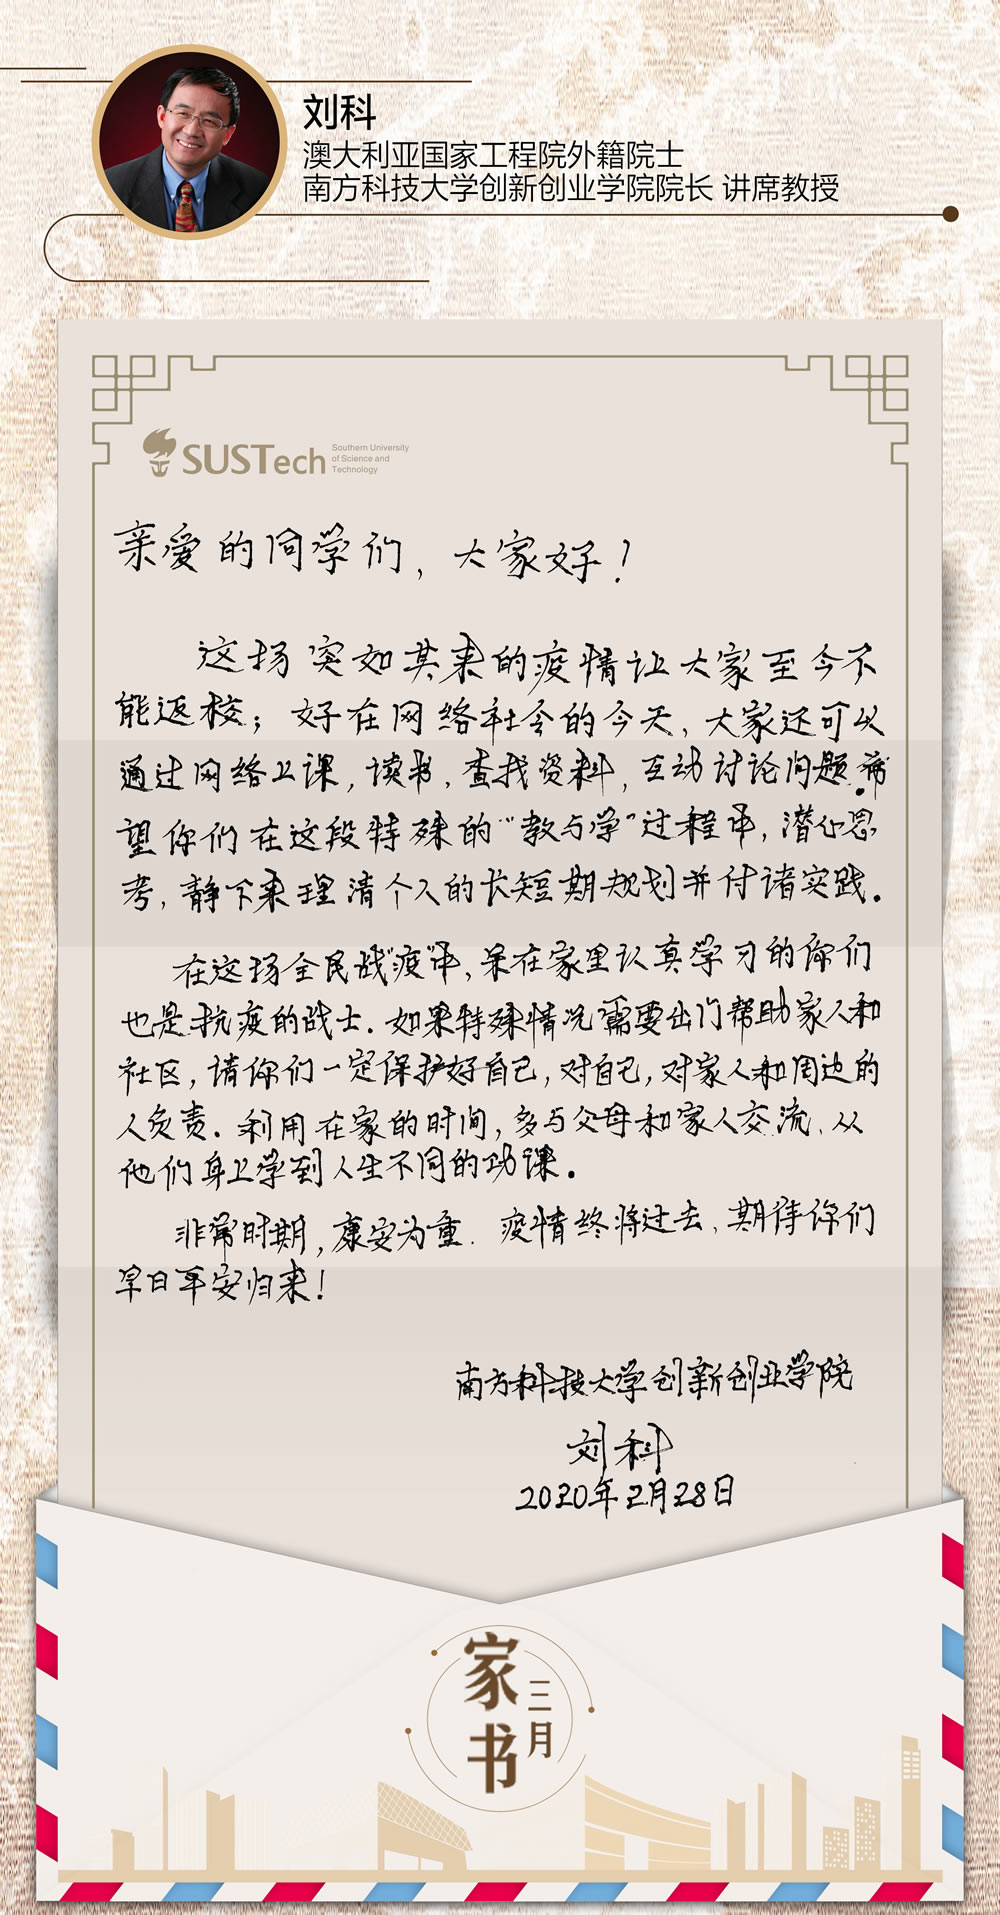 刘科
澳大利亚国家工程院外籍院士
南方科技大学创新创业学院院长 讲席教授
SUSTech
Southern University
of Science and
Technology
亲爱的同学们，大家好！
这场突如其来的疫情让大家至今不
能返校；好在网络社会的今天，大家还可以
通过网络上课，读书，查找资料，互动讨论问题。希
望你们在这段特殊的“教与学”过程中，潜心思
考，静下来理清个人的长短期规划并付诸实践。
在这场全民战“疫”中，呆在家里认真学习的你们
也是抗疫的战士．如果特殊情况需要出门帮助家人和
社区，请你们一定保护好自己，对自己，对家人和周边的
人负责．利用在家的时间，多与父母和家人交流、从
他们身上学到人生不同的功课。
非常时期，康安为重．疫情终将过去，期待你们
早日平安归来！
南方科技大学创新创业学院
刘科
2020年2月28日
家书
三月